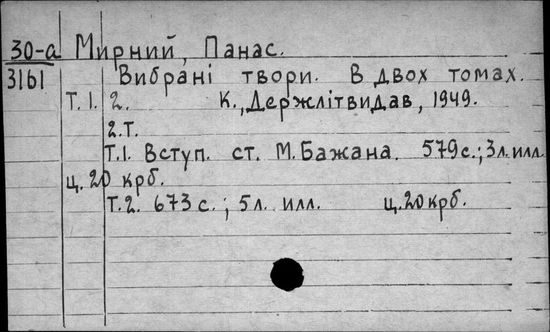 30-а Мирний, Панас.
3161 Вибрані твори. В двох томах.
Т. 1. 2. К., Держлітвидав, 1949.
2.т.
Т.1. Вступ. ст. М. Бажана. 579 с.; 3 л. илл.
ц. 20 крб.
Т.2. 673 с.; 5 л. илл. ц. 20 крб.